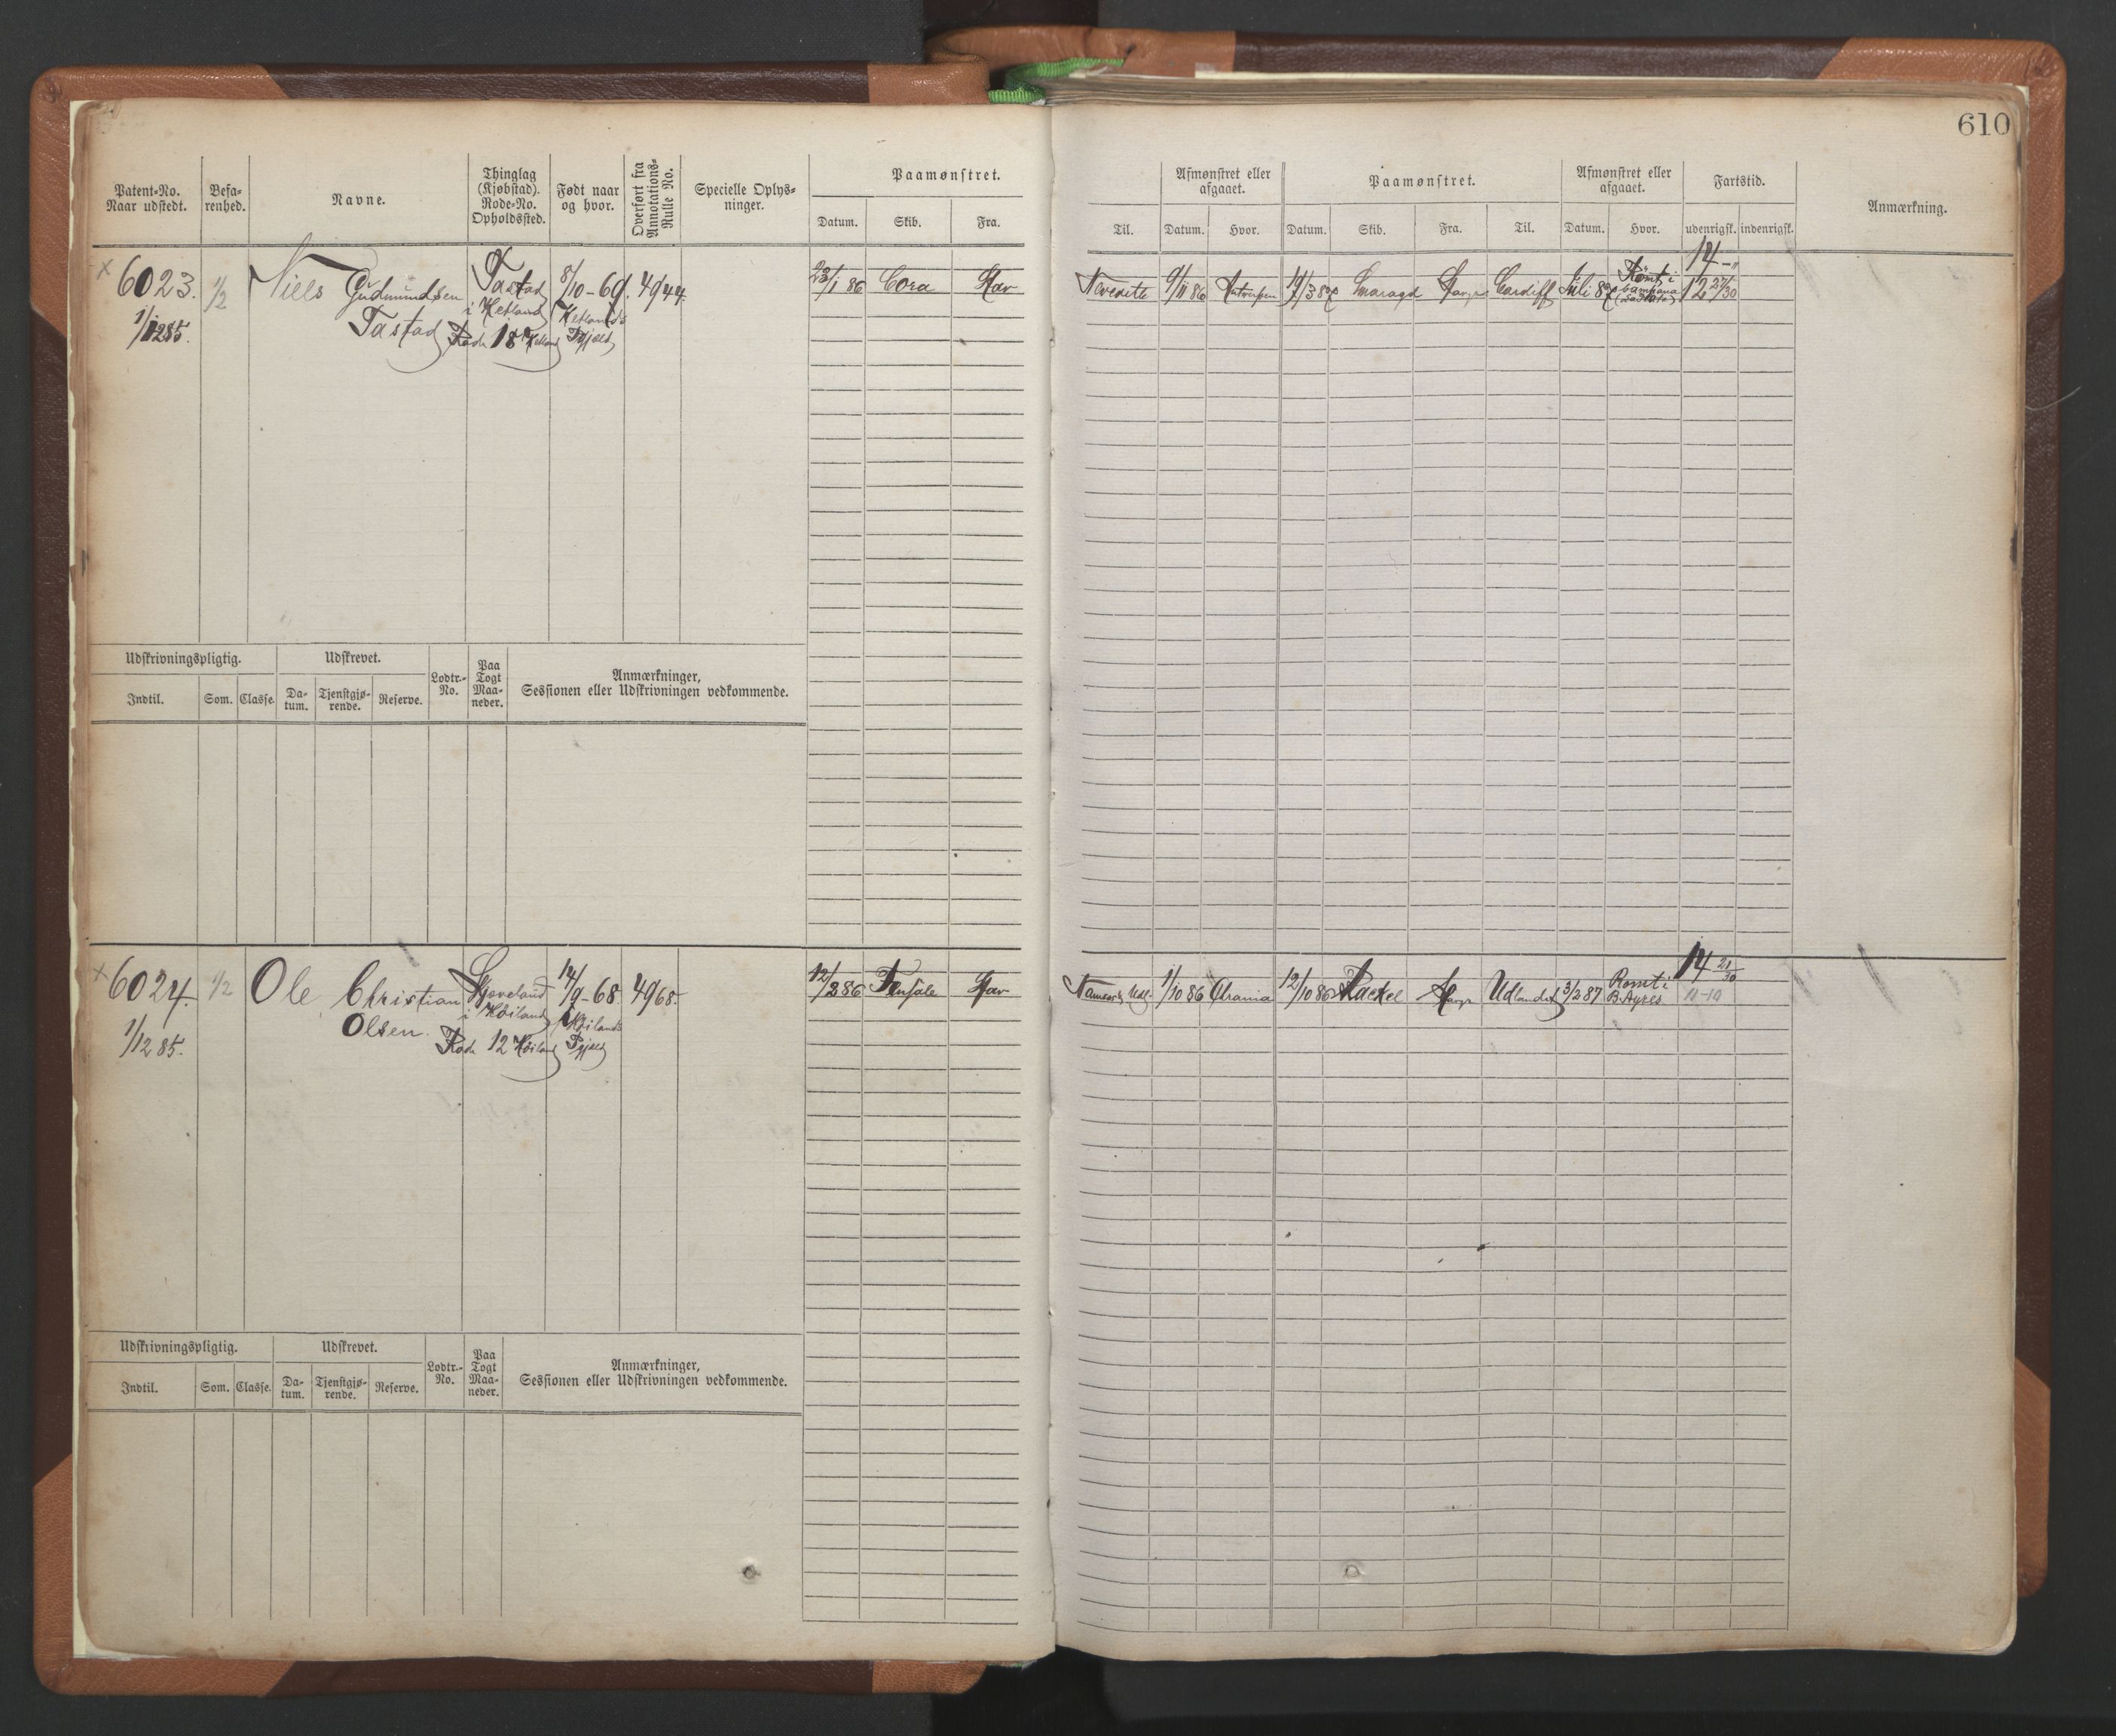 610
Patent-No.
Naar udstedt.
Befa-
renhed.
Navne.
Thinglag
(Kjøbstad).
Rode-No.
Opholdssted.
Født naar
og hvor.
Overført fra
Annotations-
Rulle No.
Specielle Oplys-
ninger.
Paamønstret.
Datum. Skib. Fra.
Til.
Afmønstret eller
afgaaet.
Datum. Hvor.
Paamønstret.
Datum. Skib. Fra. Til.
Afmønstret eller
afgaaet.
Datum. Hvor.
Fartstid.
udenrigsk. indenrigsk.
Anmærkning.
6023.
1/12 85.
1/2
Niels Gudmundsen
Tastad
Tastad
i Hetland
Rode 18 Hetland
8/10-69.
Hetlands
Prgjeld
4944.
23/1 86 Cora Stav
9/11 86 Antwerpen
Smaragd Cardiff Juli 87
Rømt i
14 - "
12 27/30
Udskrivningspligtig.
Udskrevet.
Lodtr.-
No.
Paa
Togt
Maa-
neder.
Anmærkninger,
Sessionen eller Udskrivningen vedkommende.
Indtil. Som. Classe.
Da-
tum.
Tjenstgjø-
rende.
Reserve.
6024.
1/12 85.
1/2
Ole Christian
Olsen.
i Høiland
Rode 12 Høiland
14/9-68.
Høilands
Prgjeld
4968.
12/2 86 Stav
1/10 86 Urania 12/10 86 Udlandet 3/2 87
Rømt i
B. Ayres
14 21/30
11-19
Udskrivningspligtig.
Udskrevet.
Lodtr.-
No.
Paa
Togt
Maa-
neder.
Anmærkninger,
Sessionen eller Udskrivningen vedkommende.
Indtil. Som. Classe.
Da-
tum.
Tjenstgjø-
rende.
Reserve.